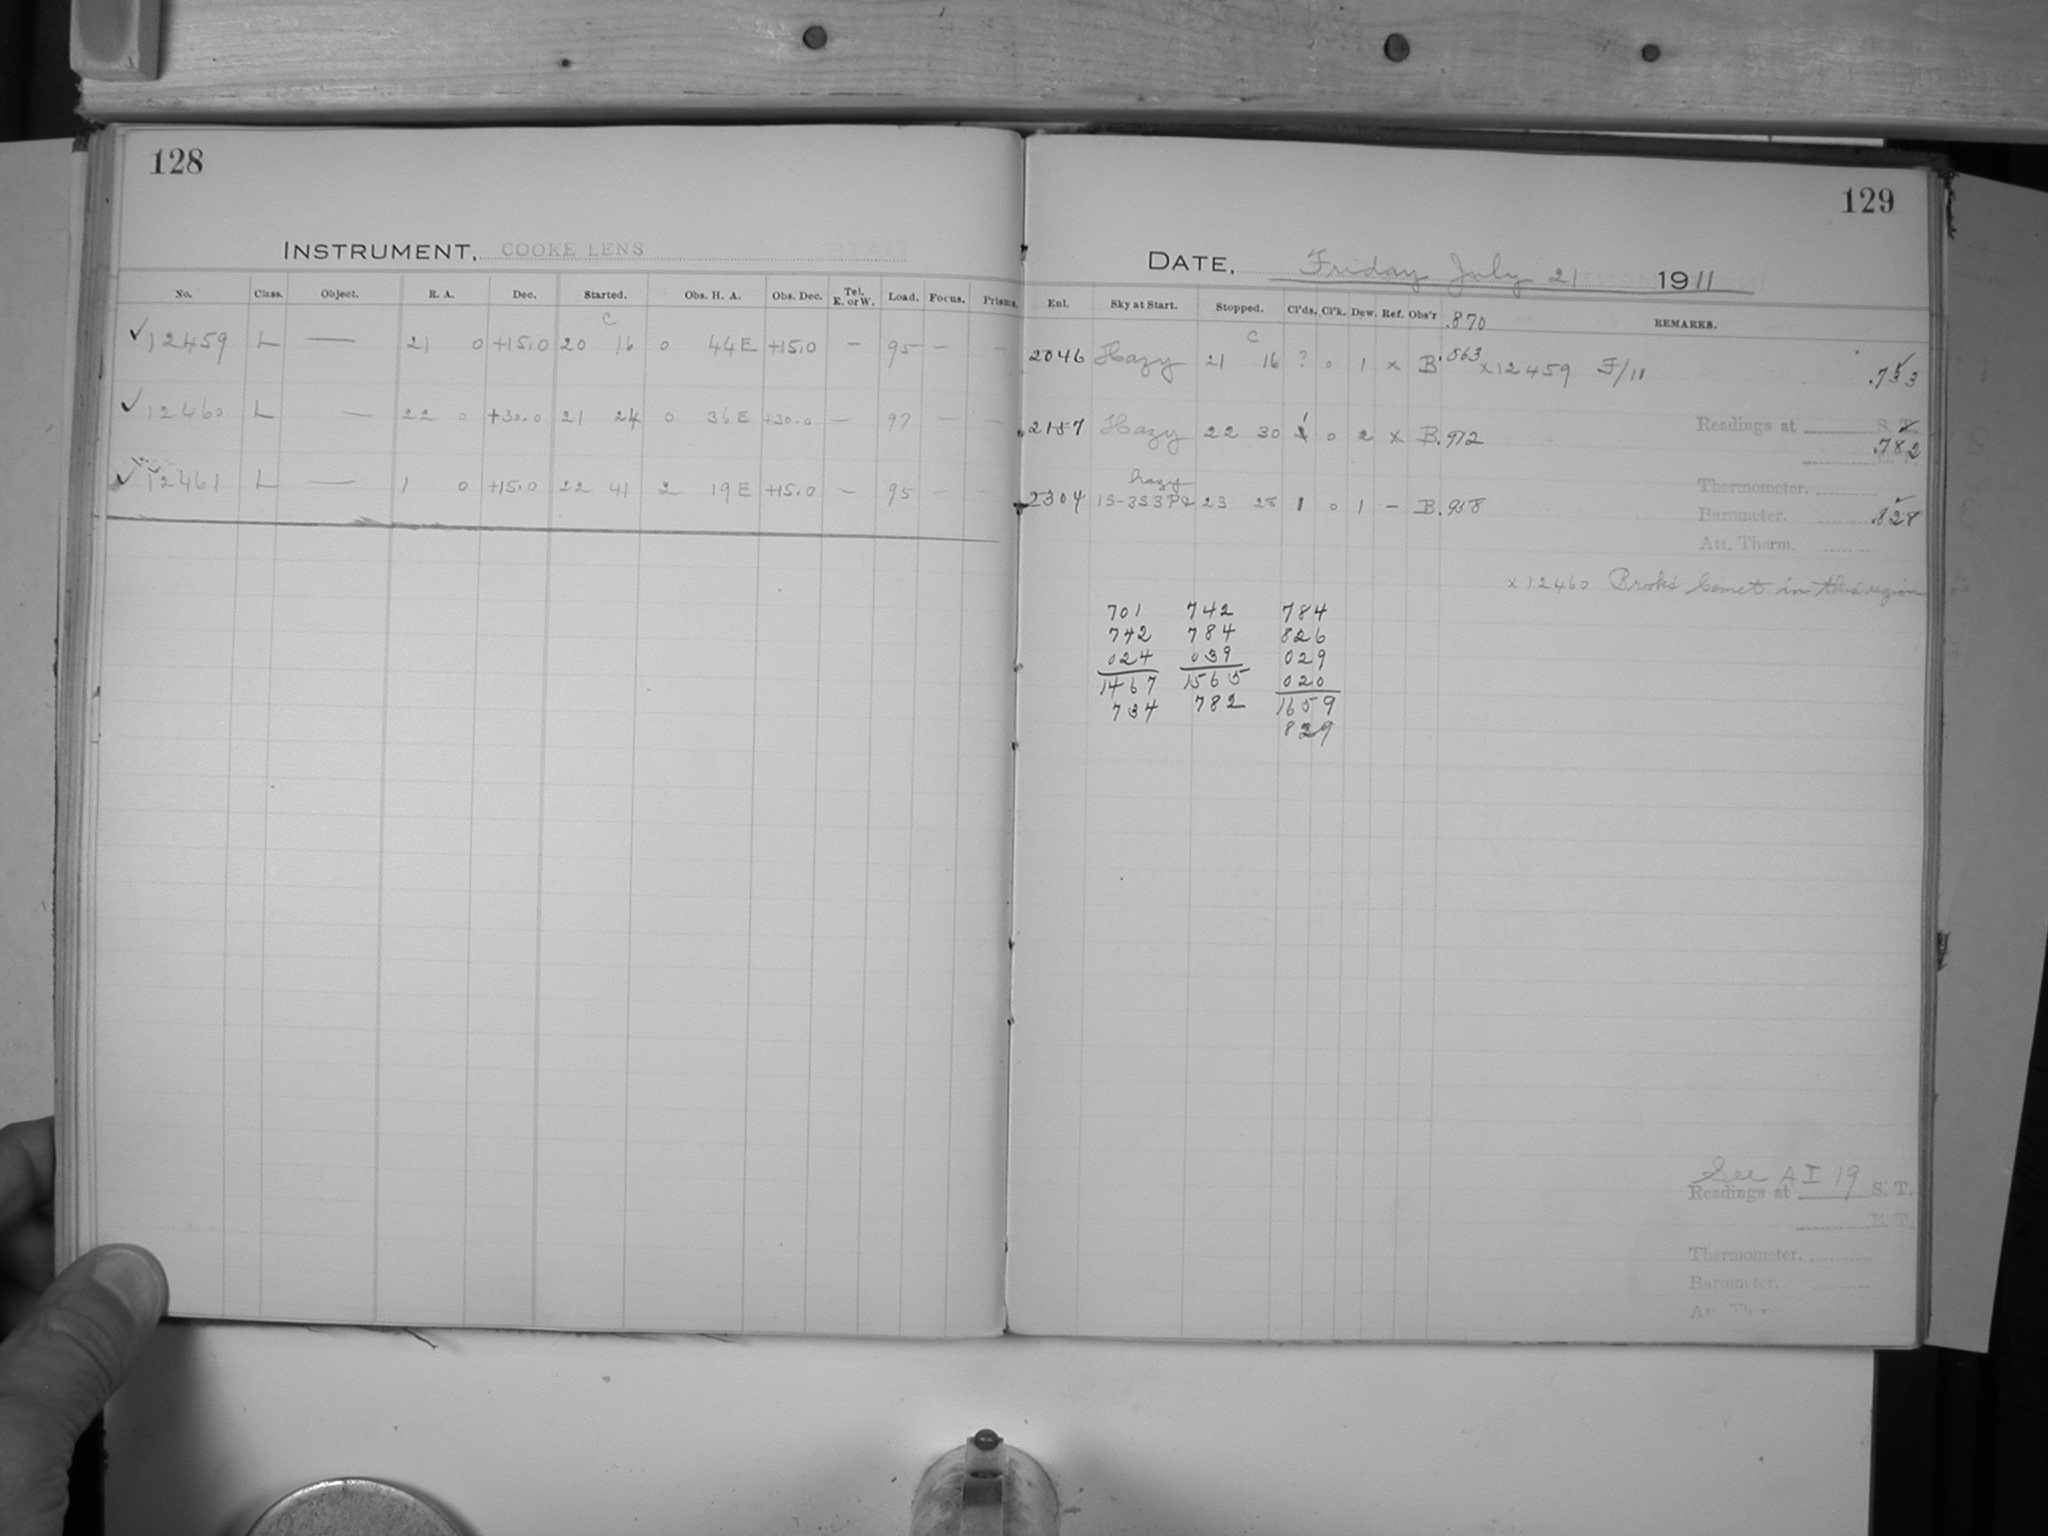 128
INSTRUMENT, COOKE LENS
No. Class. Object. R. A. Dec. Started. Obs. H. A. Obs. Dec. Tel. E. or W. Load. Focus. Prisms.
C
✓12459 L — 21 0 +15.0 20 16 0 44E +15.0 — 95 — —
✓12460 L — 22 0 +30.0 21 24 0 36E +30.0 — 97 — —
✓12461 L — 1 0 +15.0 22 41 2 19E +15.0 — 95 — —
129
DATE, Friday July 21 1911
Enl. Sky at Start. Stopped. Cl'ds. Cl'k. Dew. Ref. Obs'r REMARKS.
.870
C
2046 Hazy 21 16 ? 0 1 x B .863 x12459 F/11 .733
Readings at S. T.
2157 Hazy 22 30 1 0 2 x B .972 .782
Thermometer.
hazy
2304 1S-3S3P2 23 28 1 0 1 — B .958
Barometer. .828
Att. Therm.
x12460 Brooks Comet in this region
701 742 784
742 784 826
024 039 029
1467 1565 020
734 782 1659
829
See A I 19
Readings at S. T.
E. T.
Thermometer.
Barometer.